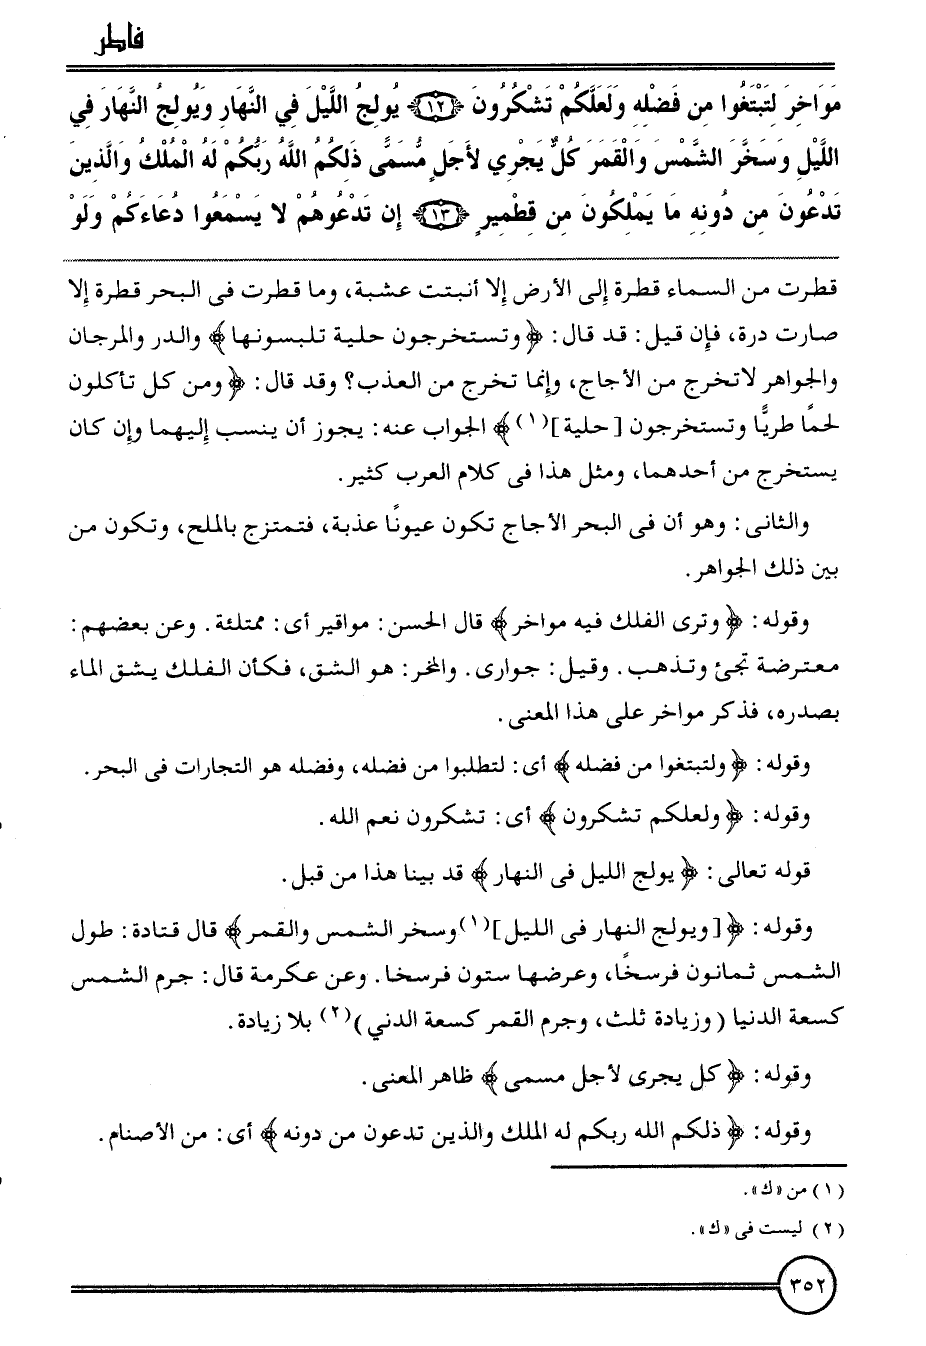 فاطر
مَوَاخِرَ لِتَبْتَغُوا مِن فَضْلِهِ وَلَعَلَّكُمْ تَشْكُرُونَ ﴿١٢﴾ يُولِجُ اللَّيْلَ فِي النَّهَارِ وَيُولِجُ النَّهَارَ فِي
اللَّيْلِ وَسَخَّرَ الشَّمْسَ وَالْقَمَرَ كُلٌّ يَجْرِي لأَجَلٍ مُّسَمًّى ذَلِكُمُ اللَّهُ رَبُّكُمْ لَهُ الْمُلْكُ وَالَّذِينَ
تَدْعُونَ مِن دُونِهِ مَا يَمْلِكُونَ مِن قِطْمِيرٍ ﴿١٣﴾ إِن تَدْعُوهُمْ لا يَسْمَعُوا دُعَاءَكُمْ وَلَوْ
قطرت من السماء قطرة إلى الأرض إلا أنبتت عشبة، وما قطرت فى البحر قطرة إلا
صارت درة، فإن قيل: قد قال: ﴿وتستخرجون حلية تلبسونها﴾ والدر والمرجان
والجواهر لاتخرج من الأجاج، وإنما تخرج من العذب؟ وقد قال: ﴿ومن كل تأكلون
لحمًا طريًّا وتستخرجون [حلية](١)﴾ الجواب عنه: يجوز أن ينسب إليهما وإن كان
يستخرج من أحدهما، ومثل هذا فى كلام العرب كثير.
والثانى: وهو أن فى البحر الأجاج تكون عيونًا عذبة، فتمتزج بالملح، وتكون من
بين ذلك الجواهر.
وقوله: ﴿وترى الفلك فيه مواخر﴾ قال الحسن: مواقير أى: ممتلئة. وعن بعضهم:
معترضة تجئ وتذهب. وقيل: جوارى. والمخر: هو الشق، فكأن الفلك يشق الماء
بصدره، فذكر مواخر على هذا المعنى.
وقوله: ﴿ولتبتغوا من فضله﴾ أى: لتطلبوا من فضله، وفضله هو التجارات فى البحر.
وقوله: ﴿ولعلكم تشكرون﴾ أى: تشكرون نعم الله.
قوله تعالى: ﴿يولج الليل فى النهار﴾ قد بينا هذا من قبل.
وقوله: ﴿[ويولج النهار فى الليل](١)وسخر الشمس والقمر﴾ قال قتادة: طول
الشمس ثمانون فرسخًا، وعرضها ستون فرسخا. وعن عكرمة قال: جرم الشمس
كسعة الدنيا (وزيادة ثلث، وجرم القمر كسعة الدني)(٢) بلا زيادة.
وقوله: ﴿كل يجرى لأجل مسمى﴾ ظاهر المعنى.
وقوله: ﴿ذلكم الله ربكم له الملك والذين تدعون من دونه﴾ أى: من الأصنام.
(١) من «ك».
(٢) ليست فى «ك».
٣٥٢